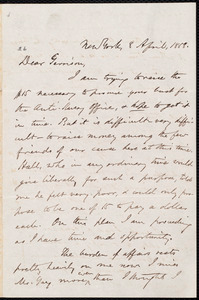 New York, 8 April, 1858.
Dear Garrison,
I am trying to raise the
$15 necessary to procure your bust for
the Anti-Slavery Office, & hope to get it
in time. But it is difficult, very diffi-
cult to raise money among the few
friends of our cause here at this time.
Hall, who in any ordinary time would
give liberally for such a purpose, told
me he felt very poor, & could only pro-
pose to be one of to pay a dollar
each. On this plan I am proceeding
as I have time and opportunity.
The burden of affairs rests
pretty heavily on me now. I miss
Mr. Gay more, than I thought I